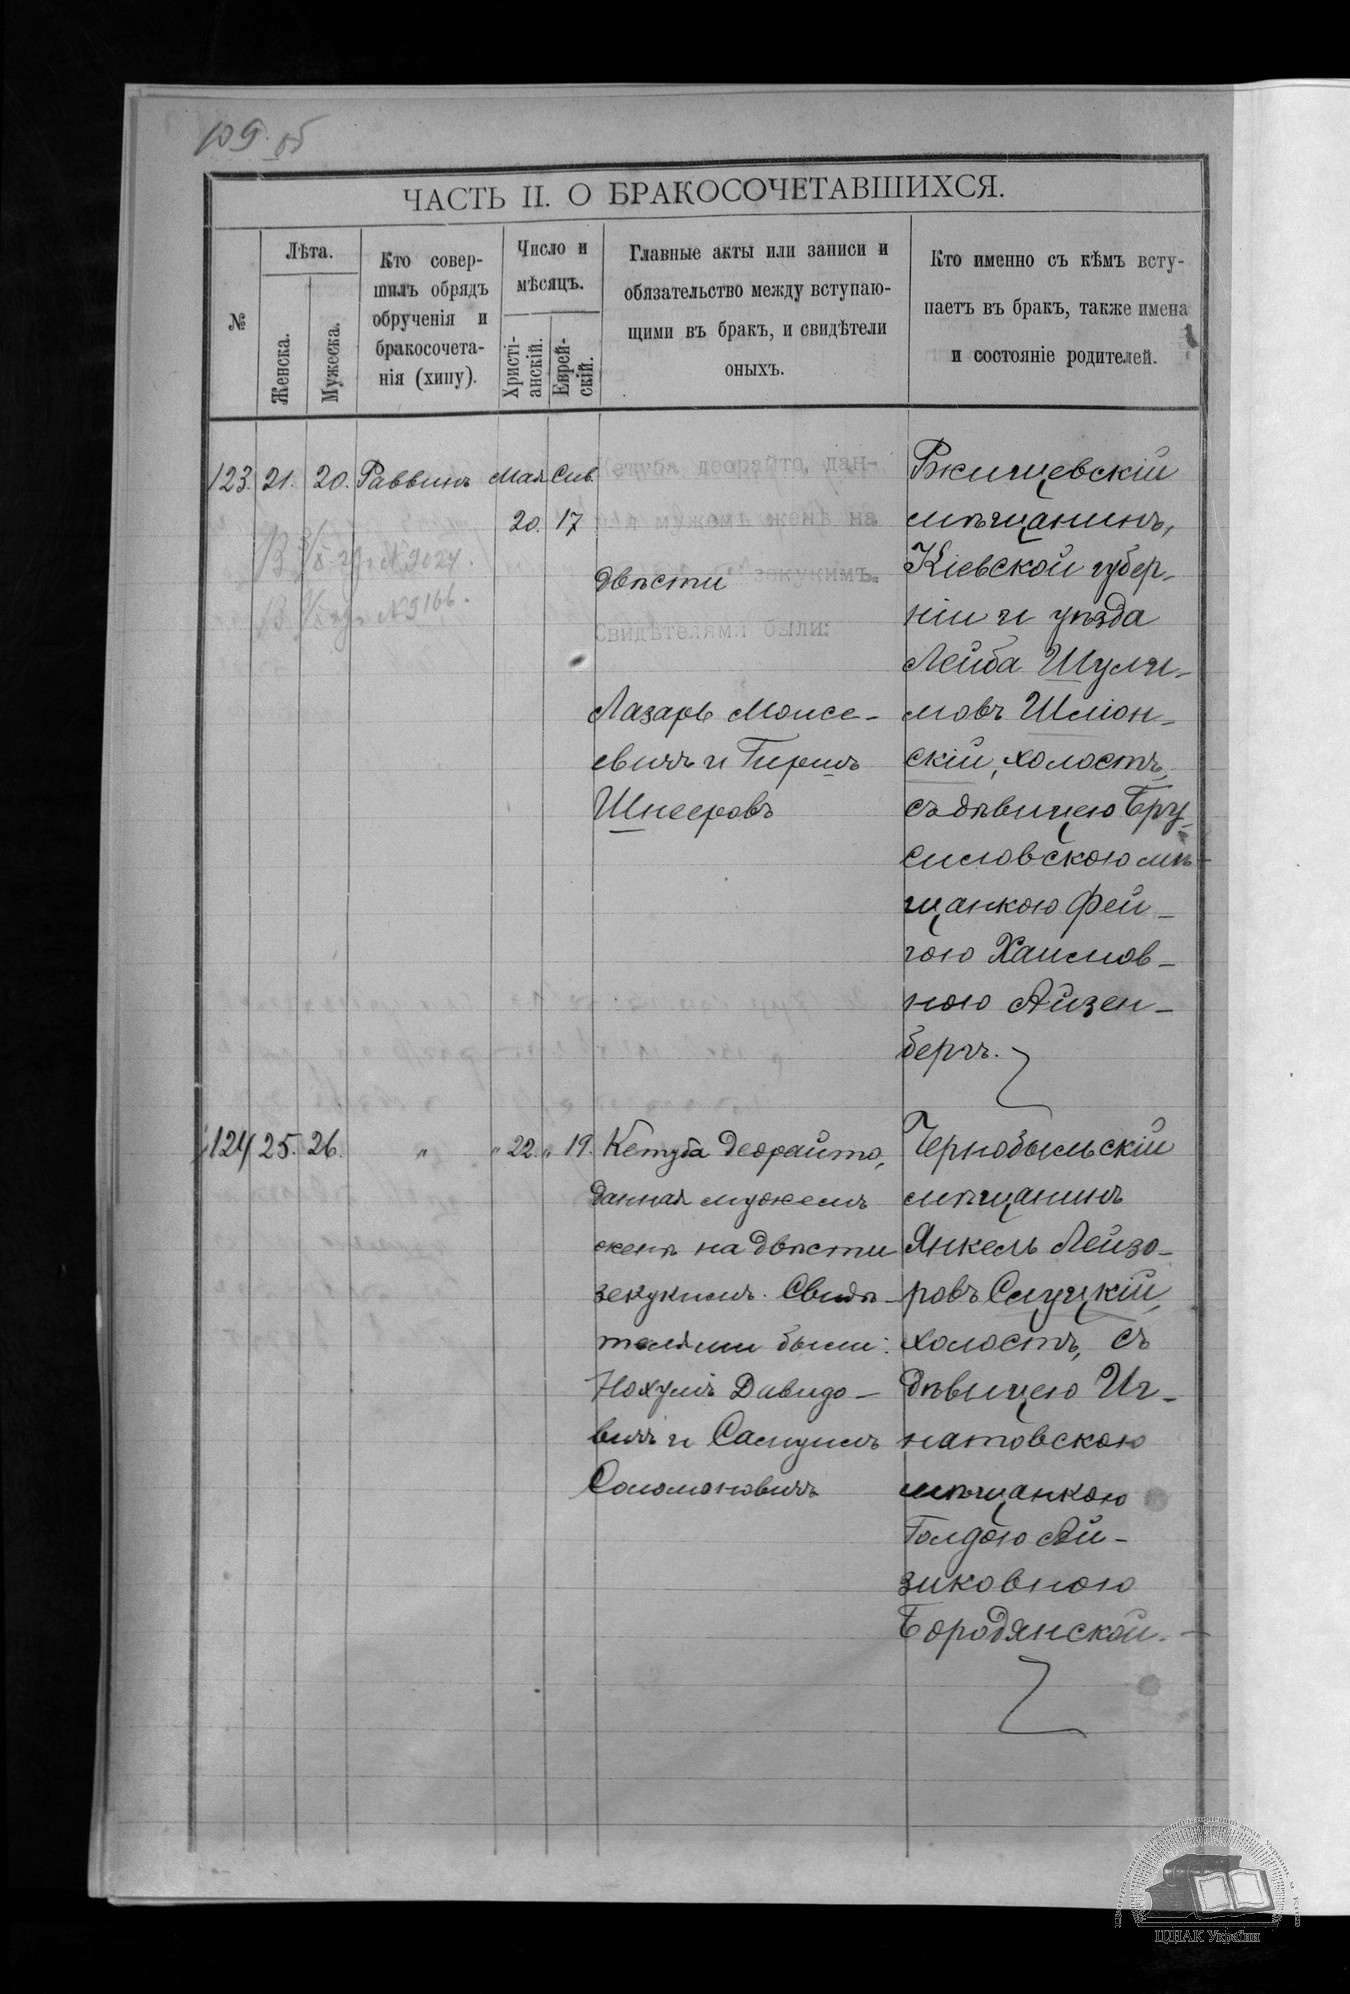 109 об
ЧАСТЬ II. О БРАКОСОЧЕТАВШИХСЯ.
№
Лѣта.
Женска.
Мужеска.
Кто совер-
шилъ обрядъ
обрученія и
бракосочета-
нія (хипу).
Число и
мѣсяцъ.
Христі-
анскій.
Еврей-
скій.
Главные акты или записи и
обязательство между вступаю-
щими въ бракъ, и свидѣтели
оныхъ.
Кто именно съ кѣмъ всту-
паетъ въ бракъ, также имена
и состояніе родителей.
123. 21. 20. Раввинъ Мая Сив.
20. 17
№ 9024.
№ 9166.
Кетуба деорайто, дан-
ная мужемъ женѣ на
двѣсти зекукимъ.
Свидѣтелями были:
Лазарь Моисе-
евичъ и Гиршъ
Шнееровъ
Ржищевскій
мѣщанинъ,
Кіевской губер-
ніи и уѣзда
Лейба Шули-
мовъ Шмон-
скій, холостъ,
съ дѣвицею Бру-
силовскою мѣ-
щанкою Фей-
гою Хаимов-
ною Айзен-
бергъ.
124 25. 26. " " 22. " 19.
Кетуба деорайто,
данная мужемъ
женѣ на двѣсти
зекукимъ. Свидѣ-
телями были:
Нохумъ Давидо-
вичъ и Самуилъ
Соломоновичъ
Чернобыльскій
мѣщанинъ
Янкель Лейзо-
ровъ Слуцкій,
холостъ, съ
дѣвицею Иг-
натовскою
мѣщанкою
Голдою Ай-
зиковною
Бородянской.
ЦДІАК України